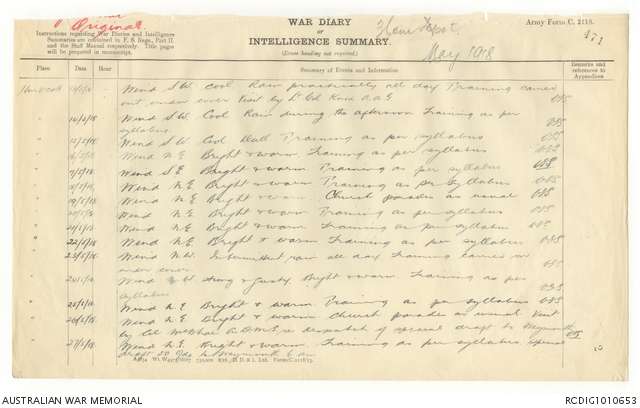 Original
WAR DIARY
or
INTELLIGENCE SUMMARY.
(Erase heading not required.)
Army Form C. 2118.
171
Instructions regarding War Diaries and Intelligence
Summaries are contained in F. S. Regs., Part II.
and the Staff Manual respectively. Title pages
will be prepared in manuscript.
May 1918
Place Date Hour Summary of Events and Information Remarks and references to Appendices
Wind S.W. Cool Rain practically all day Training carried
out under cover Visit by Lt Col A.A.G
14/5/18 Wind S.W. Cool Rain during the afternoon Training as per
syllabus
15/5/18 Wind S.W. Cool Dull Training as per syllabus
16/5/18 Wind N.E Bright & warm Training as per syllabus
17/5/18 Wind S.E Bright & warm Training as per syllabus
18/5/18 Wind N.E Bright & warm Training as per syllabus
19/5/18 Wind N.E Bright & warm Church parades as usual
20/5/18 Wind N.E Bright & warm Training as per syllabus
21/5/18 Wind N.E Bright & warm Training as per syllabus
22/5/18 Wind N.E Bright & warm Training as per syllabus
23/5/18 Wind N.W. Intermittent rain all day Training carried on
under cover
24/5/18 Wind strong & gusty Bright & warm Training as per
syllabus
25/5/18 Wind N.E Bright & warm Training as per syllabus
26/5/18 Wind N.E Bright & warm Church parades as usual Visit
by Col A.D.M.S. re despatch of special draft to Weymouth
27/5/18 Wind N.E Bright & warm Training as per syllabus Special
draft to Weymouth 6 am
D. D. & L. Ltd.
AUSTRALIAN WAR MEMORIAL
RCDIG1010653